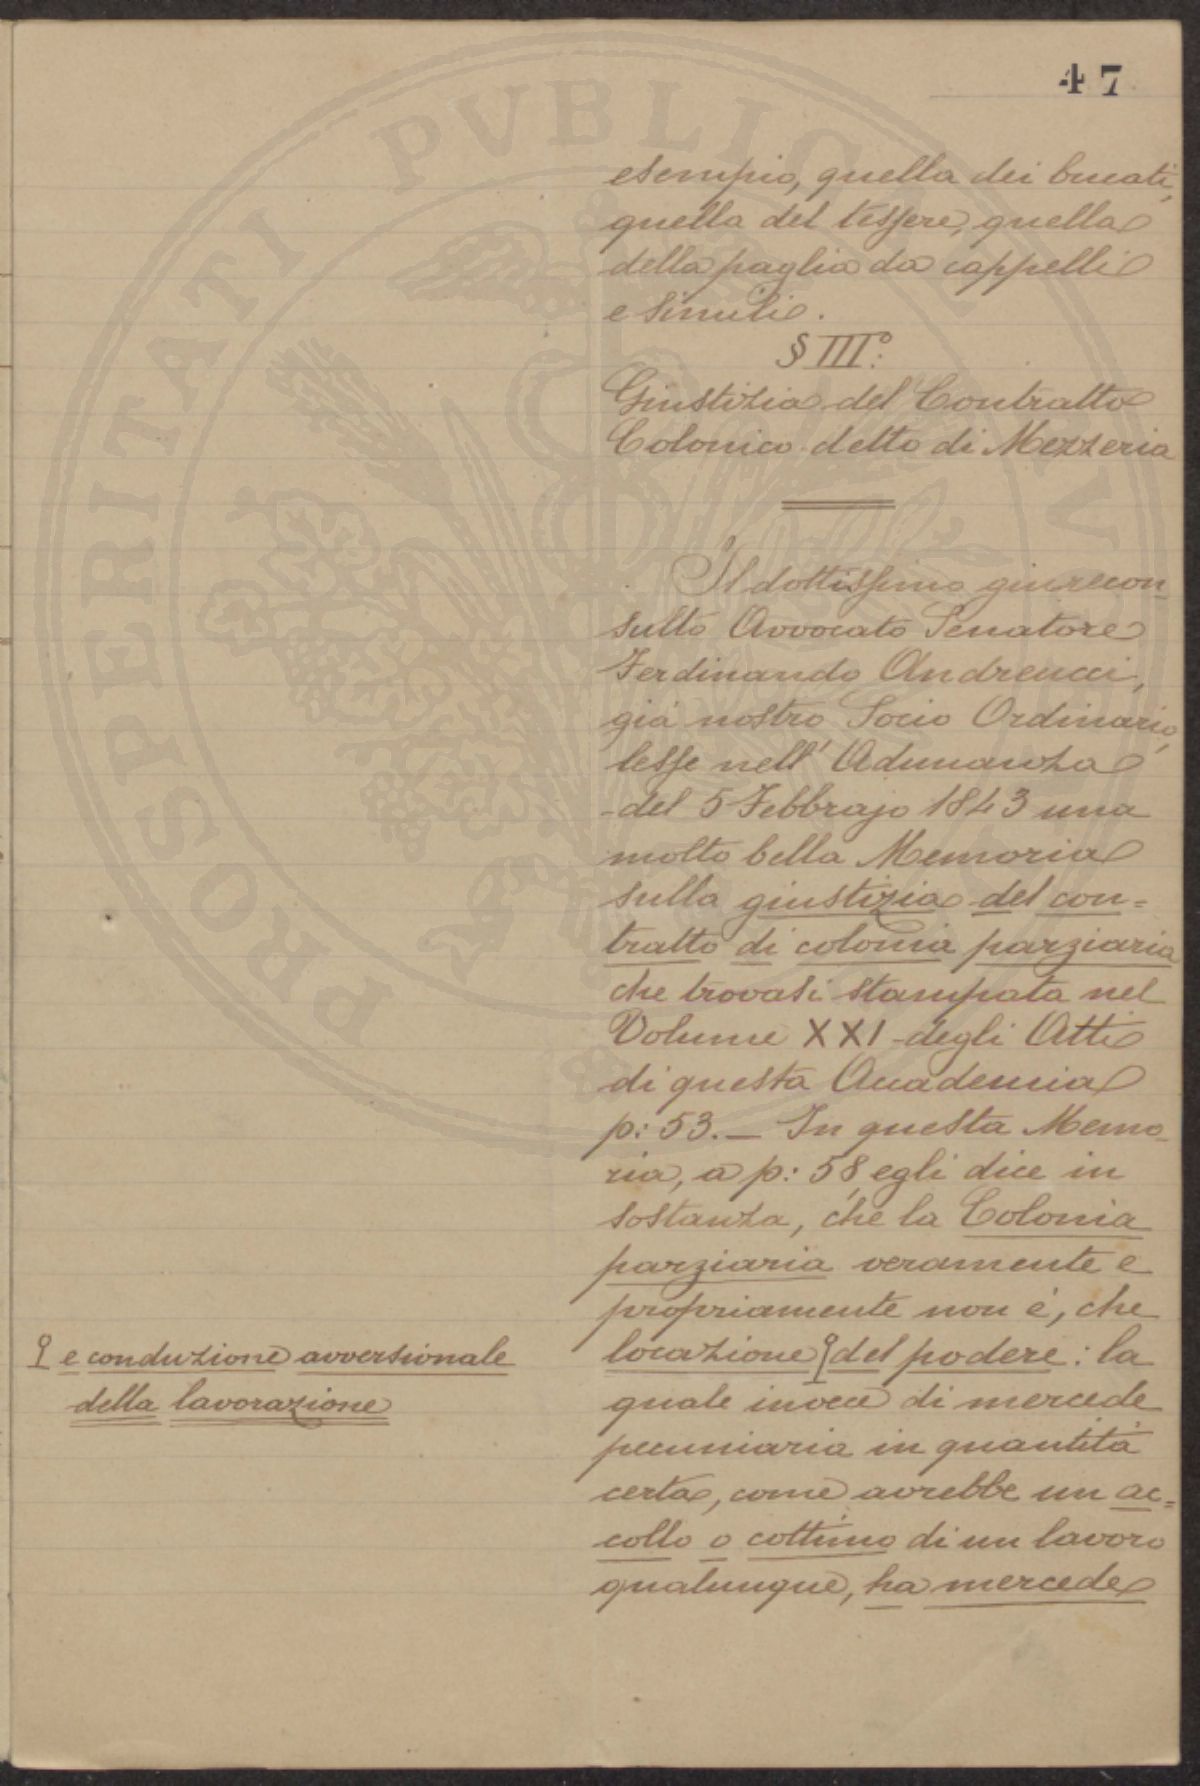 47
esempio, quella dei bucati,
quella del tessere, quella
della paglia da cappelli
e simili.
§ III.°
Giustizia del Contratto
Colonico detto di Mezzeria
Il dottissimo giurecon-
sulto Avvocato Senatore
Ferdinando Andreucci,
già nostro Socio Ordinario,
lesse nell'Adunanza
del 5 Febbrajo 1843 una
molto bella Memoria
sulla giustizia del con=
tratto di colonia parziaria
che trovasi stampata nel
Volume XXI degli Atti
di questa Accademia
p: 53. — In questa Memo-
ria, a p: 58, egli dice in
sostanza, che la Colonia
parziaria veramente e
propriamente non è, che
locazione del podere: la
quale invece di mercede
pecuniaria in quantità
certa, come avrebbe un ac=
collo o cottimo di un lavoro
qualunque, ha mercede
e conduzione avversionale
della lavorazione
PROSPERITATI PVBLICAE